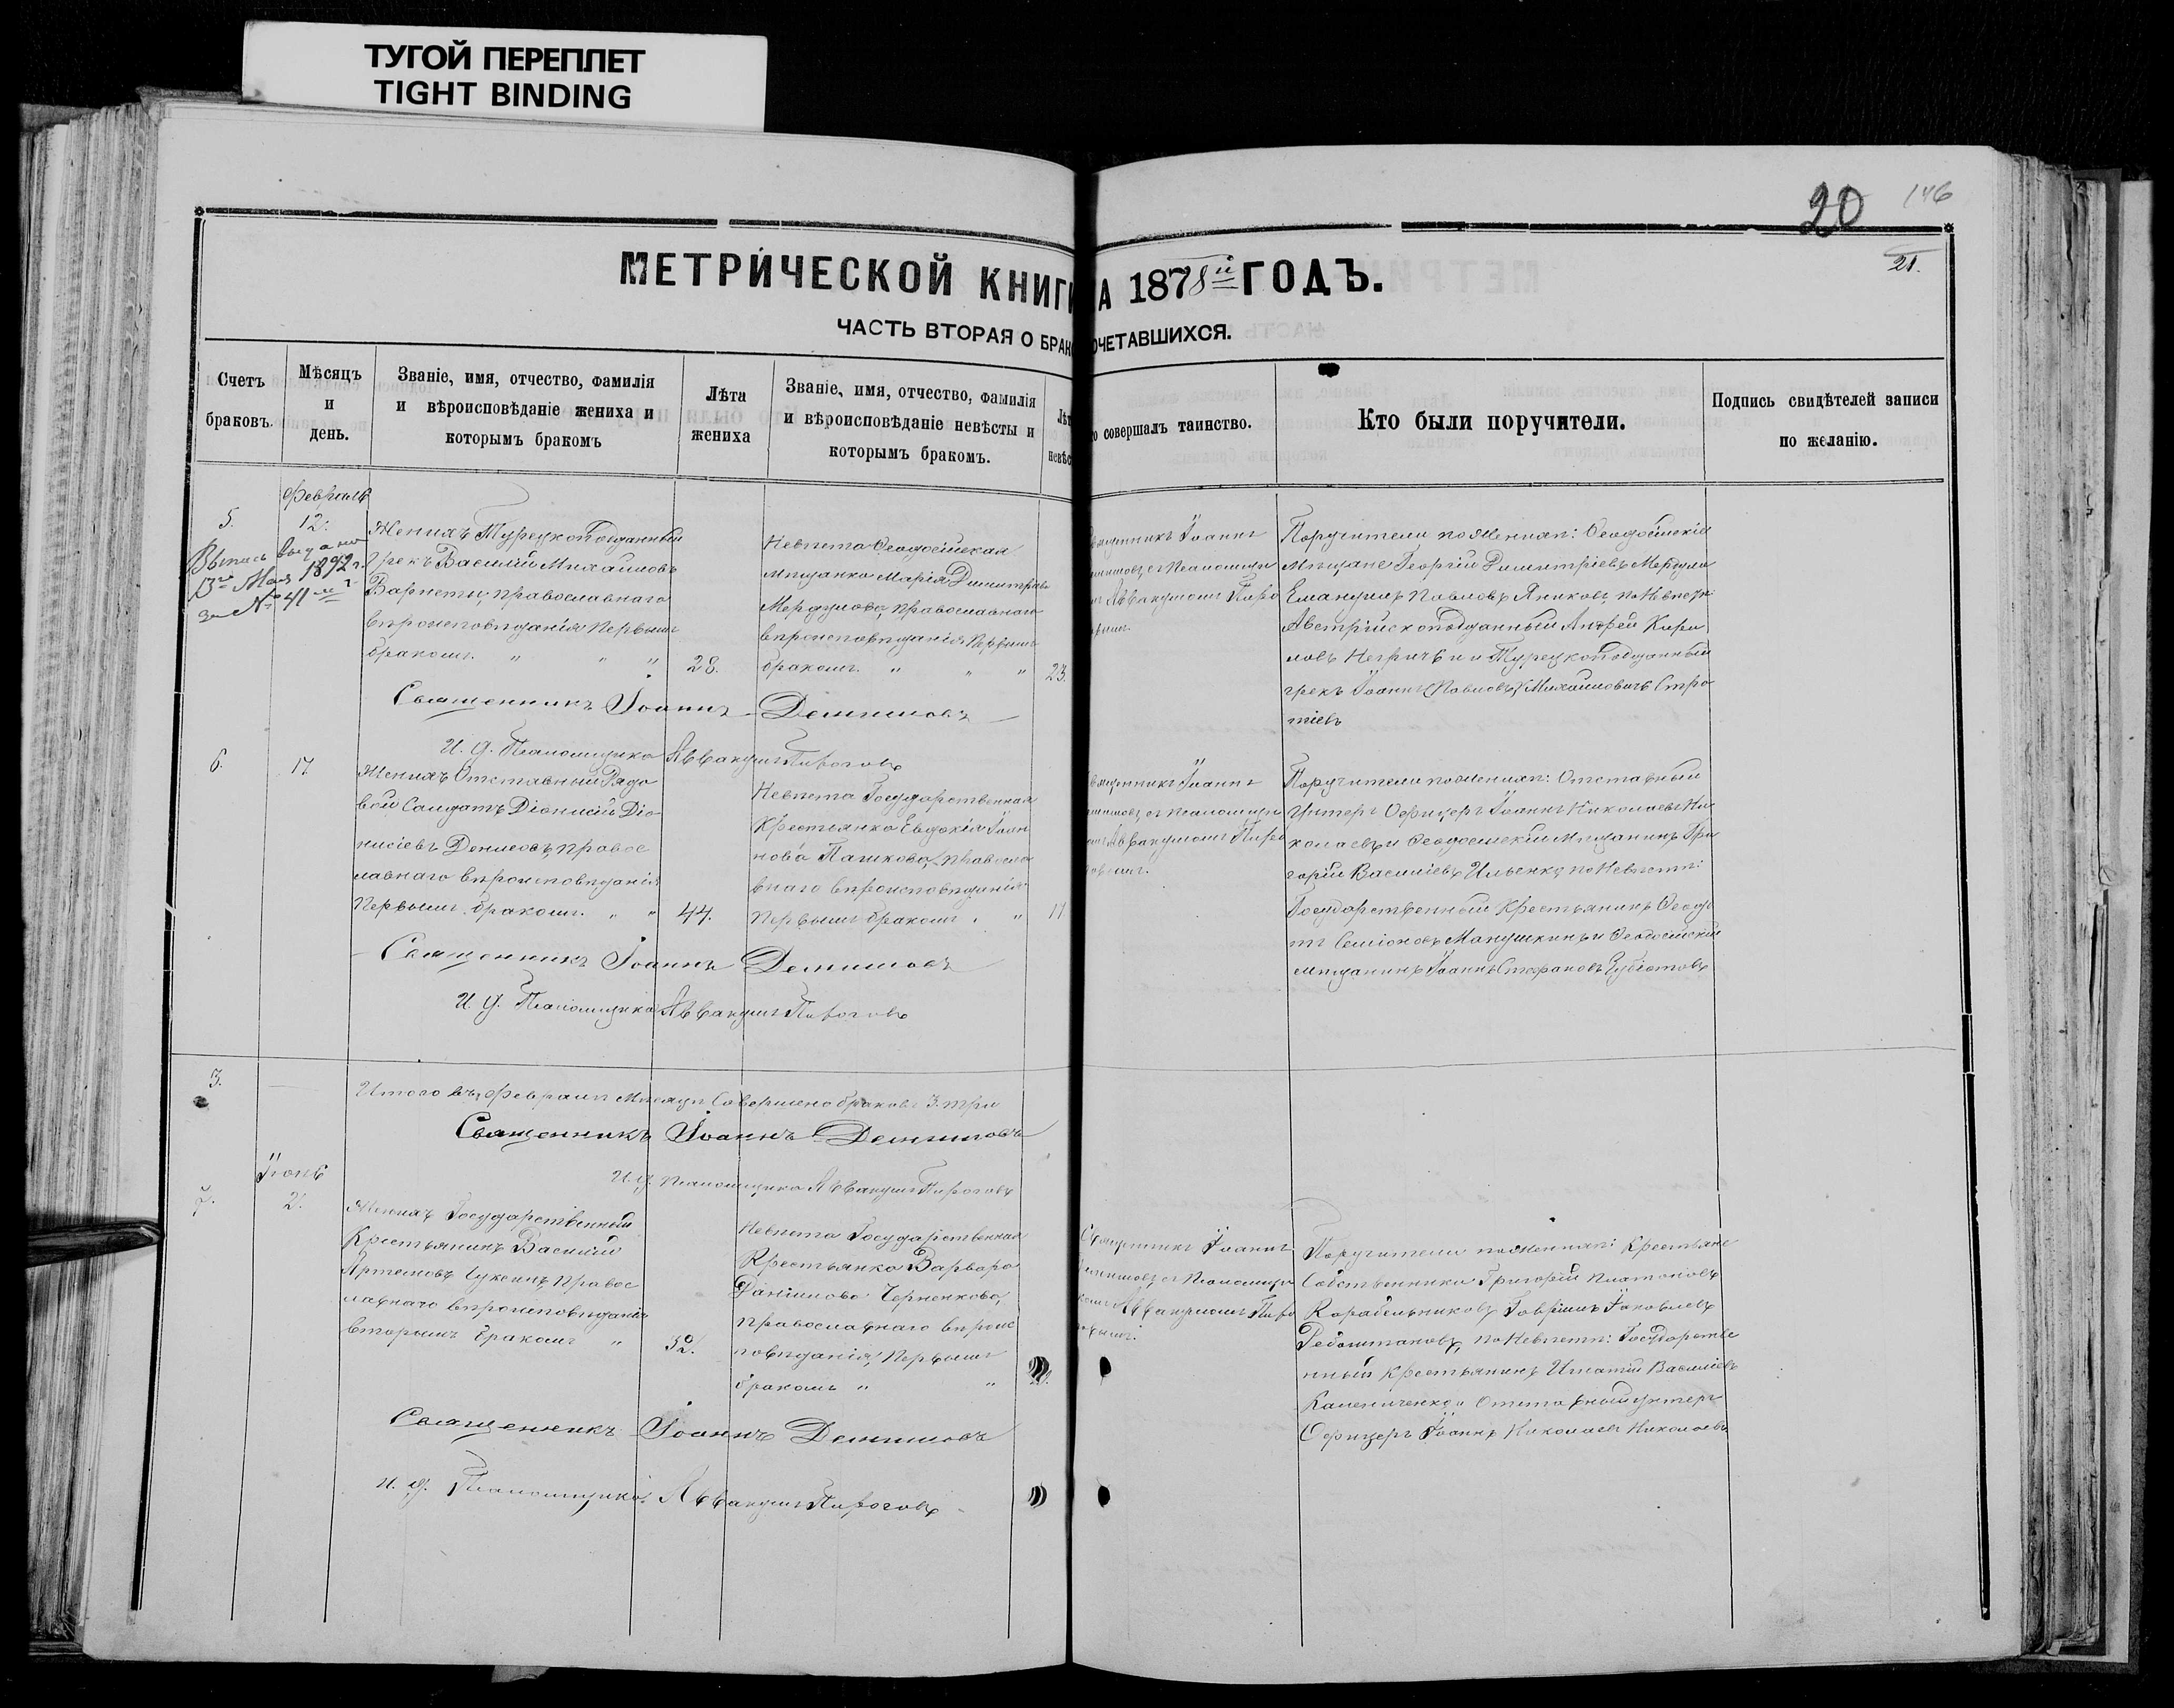 ТУГОЙ ПЕРЕПЛЕТ
TIGHT BINDING
20
146
21.
МЕТРИЧЕСКОЙ КНИГИ
А 1878й ГОДЪ.
ЧАСТЬ ВТОРАЯ О БРАКО
ОЧЕТАВШИХСЯ.
Счетъ
браковъ.
Мѣсяцъ
и
день.
Званіе, имя, отчество, фамилія
и вѣроисповѣданіе жениха и
которымъ бракомъ
Лѣта
жениха
Званіе, имя, отчество, фамилія
и вѣроисповѣданіе невѣсты и
которымъ бракомъ.
Лѣт
невѣс
о совершалъ таинство.
Кто были поручители.
Подпись свидѣтелей записи
по желанію.
Февраль
5.
12.
Выпись выдана
13го Мая 1892 г.
за № 41м
Женихъ Турецкоподданный
грекъ Василій Михаиловъ
православнаго
вѣроисповѣданія Первымъ
бракомъ. " " "
28.
Невѣста Ѳеодосійская
мѣщанка Марія Димитріева
православнаго
вѣроисповѣданія Первымъ
бракомъ. " " "
23.
Іоаннъ
съ Псаломщи
Аввакумомъ Пиро
Поручители по Женихѣ: Ѳеодосійскіе
Мѣщане Георгій Димитріевъ
Павловъ по Невѣстѣ:
Австрійскоподданный Андрей Кири
ловъ и Турецкоподданный
грекъ Іоаннъ Стра
тіевъ
Священникъ Іоаннъ
И. д. Псаломщика Аввакумъ Пироговъ
6.
17
Женихъ Отставный Рядо
вой Солдатъ Діонисій Діо
нисіевъ Денисовъ, правос
лавнаго вѣроисповѣданія
Первымъ бракомъ. " "
44.
Невѣста Государственная
Крестьянка Евдокія Іоан
нова Пашкова, Правосла
внаго вѣроисповѣданія
Первымъ бракомъ " "
Іоаннъ
съ Псаломщи
Аввакумомъ Пиро
Поручители по Женихѣ: Отставный
Унтеръ Офицеръ Іоаннъ Николаевъ Ни
колаевъ и Ѳеодосійскій Мѣщанинъ Гри
горій Василіевъ Ильенко, по Невѣстѣ:
Государственный Крестьянинъ
и Ѳеодосійскій
мѣщанинъ Іоаннъ Стефановъ
Священникъ Іоаннъ
И. д. Псаломщика Аввакумъ Пироговъ
3.
Итого въ Февралѣ Мѣсяцѣ Совершено браковъ 3. три
Священникъ Іоаннъ
И. д. Псаломщика Аввакумъ Пироговъ
7.
2.
Женихъ Государственный
Крестьянинъ Василій
Артемовъ правос
лавнаго вѣроисповѣданія
вторымъ бракомъ "
32.
Невѣста Государственная
Крестьянка Варвара
Даніилова Черненкова,
православнаго вѣроис
повѣданія, Первымъ
бракомъ " "
Священникъ Іоаннъ
съ Псаломщи
Аввакумомъ Пиро
Поручители по Женихѣ: Крестьяне
Собственники Григорій Платоновъ
Корабельниковъ, Гавріилъ Іаковлевъ
по Невѣстѣ: Государстве
нный Крестьянинъ Игнатій Василіевъ
Отставный Унтеръ
Офицеръ Іоаннъ Николаевъ Николаевъ
Священникъ Іоаннъ
И. д. Псаломщика Аввакумъ Пироговъ